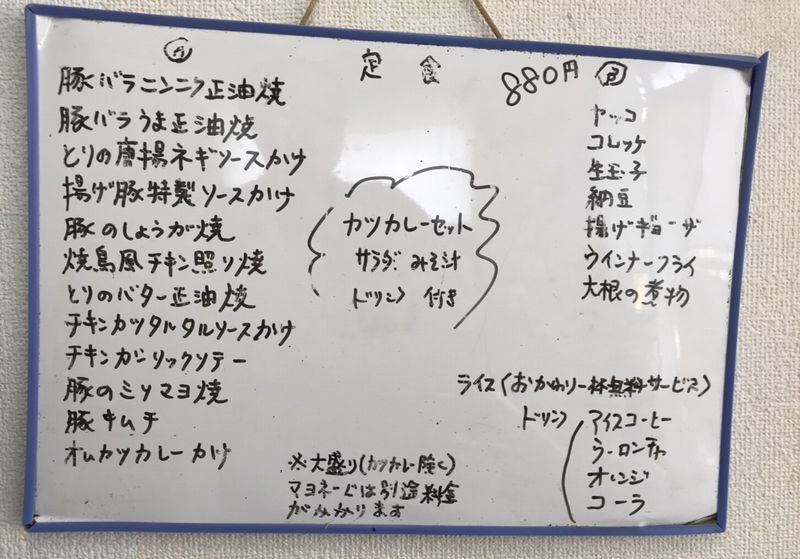 定食 880円
Ⓐ
豚バラニンニク正油焼
豚バラうま正油焼
とりの唐揚ネギソースかけ
揚げ豚特製ソースかけ
豚のしょうが焼
焼鳥風チキン照り焼
とりのバター正油焼
チキンカツタルタルソースかけ
チキンガーリックソテー
豚のミソマヨ焼
豚キムチ
オムカツカレーかけ
カツカレーセット
サラダ みそ汁
ドリンク 付き
Ⓑ
ヤッコ
コロッケ
生玉子
納豆
揚げギョーザ
ウインナーフライ
大根の煮物
ライス(おかわり一杯無料サービス)
ドリンク
アイスコーヒー
ウーロン茶
オレンジ
コーラ
※大盛り(カツカレー除く)
マヨネーズは別途料金
がかかります